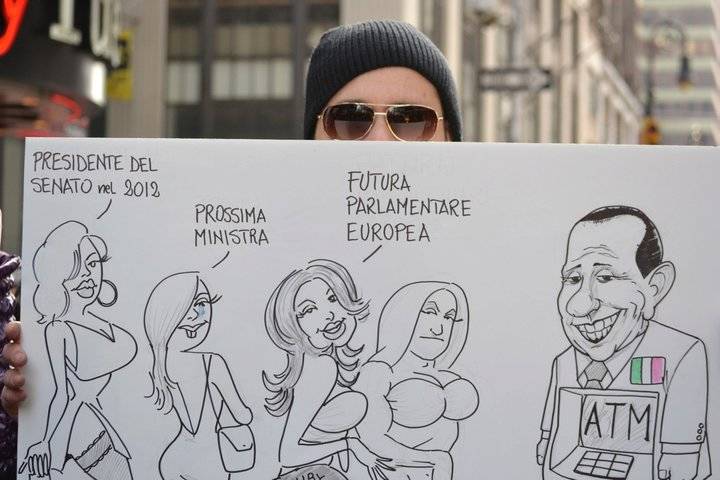 PRESIDENTE DEL
SENATO nel 2012
PROSSIMA
MINISTRA
FUTURA
PARLAMENTARE
EUROPEA
ATM